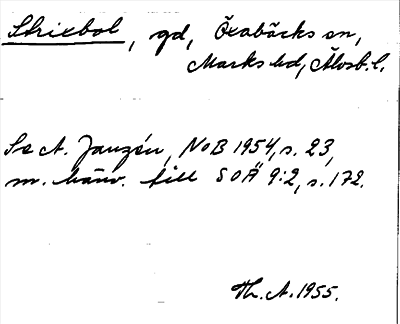 Skriebol, gd, Öxabäcks sn,
Marks hd, Älvsb. l.
Se A. Janzén, NoB 1954, s. 23,
m. hänv. till SOÄ 9:2, s. 172.
Th. A. 1955.